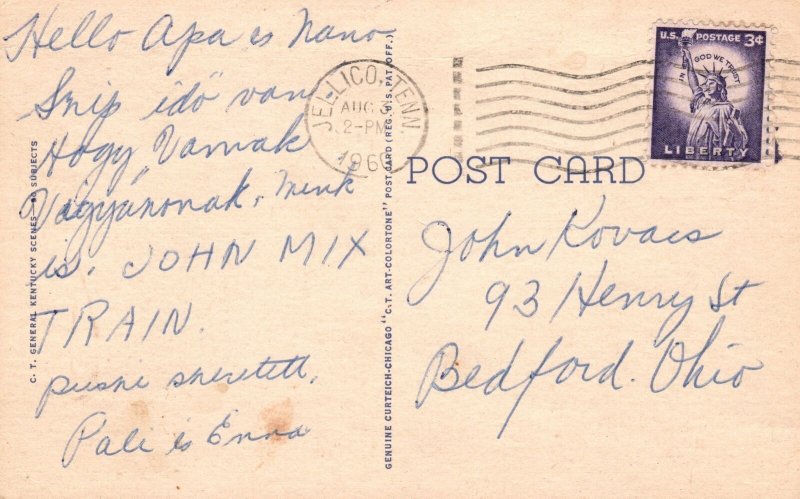 Hello Apa es Nano
Snip idö van
Hogy Vannak
Vagyanonak, Mink
is. JOHN MIX
TRAIN.
Pali is Enna
C. T. GENERAL KENTUCKY SCENES— SUBJECTS
GENUINE CURTEICH-CHICAGO "C. T. ART-COLORTONE" POST CARD (REG. U. S. PAT. OFF.)
JELLICO, TENN.
AUG 3
2-PM
196
U.S. POSTAGE 3¢
IN GOD WE TRUST
LIBERTY
POST CARD
John Kovacs
93 Henry St
Bedford. Ohio